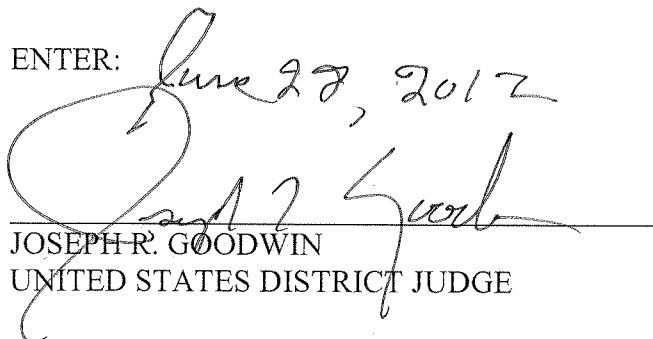 ENTER: June 28, 2012
Joseph R Goodwin
JOSEPH R. GOODWIN
UNITED STATES DISTRICT JUDGE